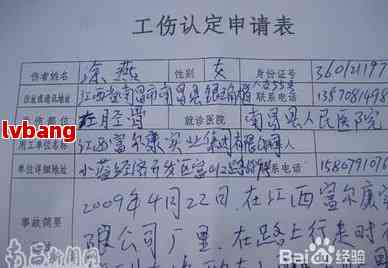 工伤认定申请表
伤者姓名 涂燕 性别 女 身份证号 360121197
住址或通讯地址 江西省南昌市南昌县 联系电话 1357081498
工伤部位 左胫骨 就诊医院 南昌县人民医院
用工单位名称 江西富尔康实业 有限 人
单位详细地址 小蓝经济开发区富山 联系电话 150791016
2009年4月22日,在江西富尔康实
事故简要 限公司厂里,在路上行走时
lvbang
Baidu百度经验